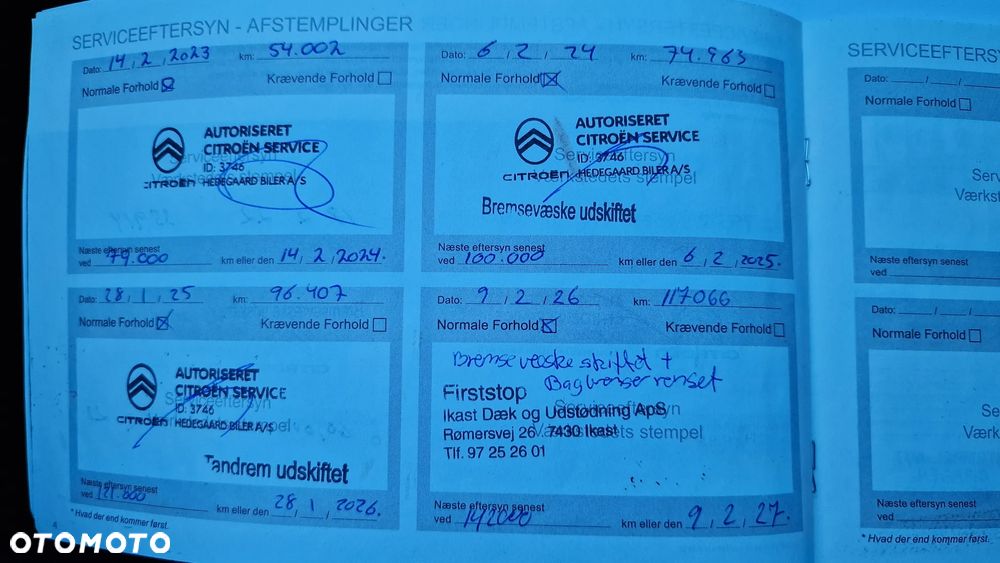 SERVICEEFTERSYN - AFSTEMPLINGER
Dato: 14,2,2023 km: 54.002
Normale Forhold Krævende Forhold
AUTORISERET
CITROËN SERVICE
Serviceeftersyn
ID: 3746
Værkstedets stempel
CITROËN HEDEGAARD BILER A/S
Næste eftersyn senest
ved 79.000 km eller den 14,2,2024.
Dato: 6,2,24 km: 74.963
Normale Forhold Krævende Forhold
AUTORISERET
CITROËN SERVICE
Serviceeftersyn
ID: 3746
Værkstedets stempel
CITROËN HEDEGAARD BILER A/S
Bremsevæske udskiftet
Næste eftersyn senest
ved 100.000 km eller den 6,2,2025.
Dato: 28,1,25 km: 96.407
Normale Forhold Krævende Forhold
AUTORISERET
CITROËN SERVICE
Serviceeftersyn
ID: 3746
Værkstedets stempel
CITROËN HEDEGAARD BILER A/S
Tandrem udskiftet
Næste eftersyn senest
ved 121.000 km eller den 28,1,2026.
* Hvad der end kommer først.
4
Dato: 9,2,26 km: 117066
Normale Forhold Krævende Forhold
Bremsevæske skiftet +
Bagbremser renset
Firststop
Serviceeftersyn
Ikast Dæk og Udstødning ApS
Rømersvej 26 7430 Ikast
Værkstedets stempel
Tlf. 97 25 26 01
Næste eftersyn senest
ved 142000 km eller den 9,2,27.
SERVICEEFTERSY
Dato: / /
Normale Forhold
Serv
Værkst
Næste eftersyn senest
ved
Dato: / /
Normale Forhold
Ser
Værkst
Næste eftersyn senest
ved
* Hvad der end kommer først.
OTOMOTO